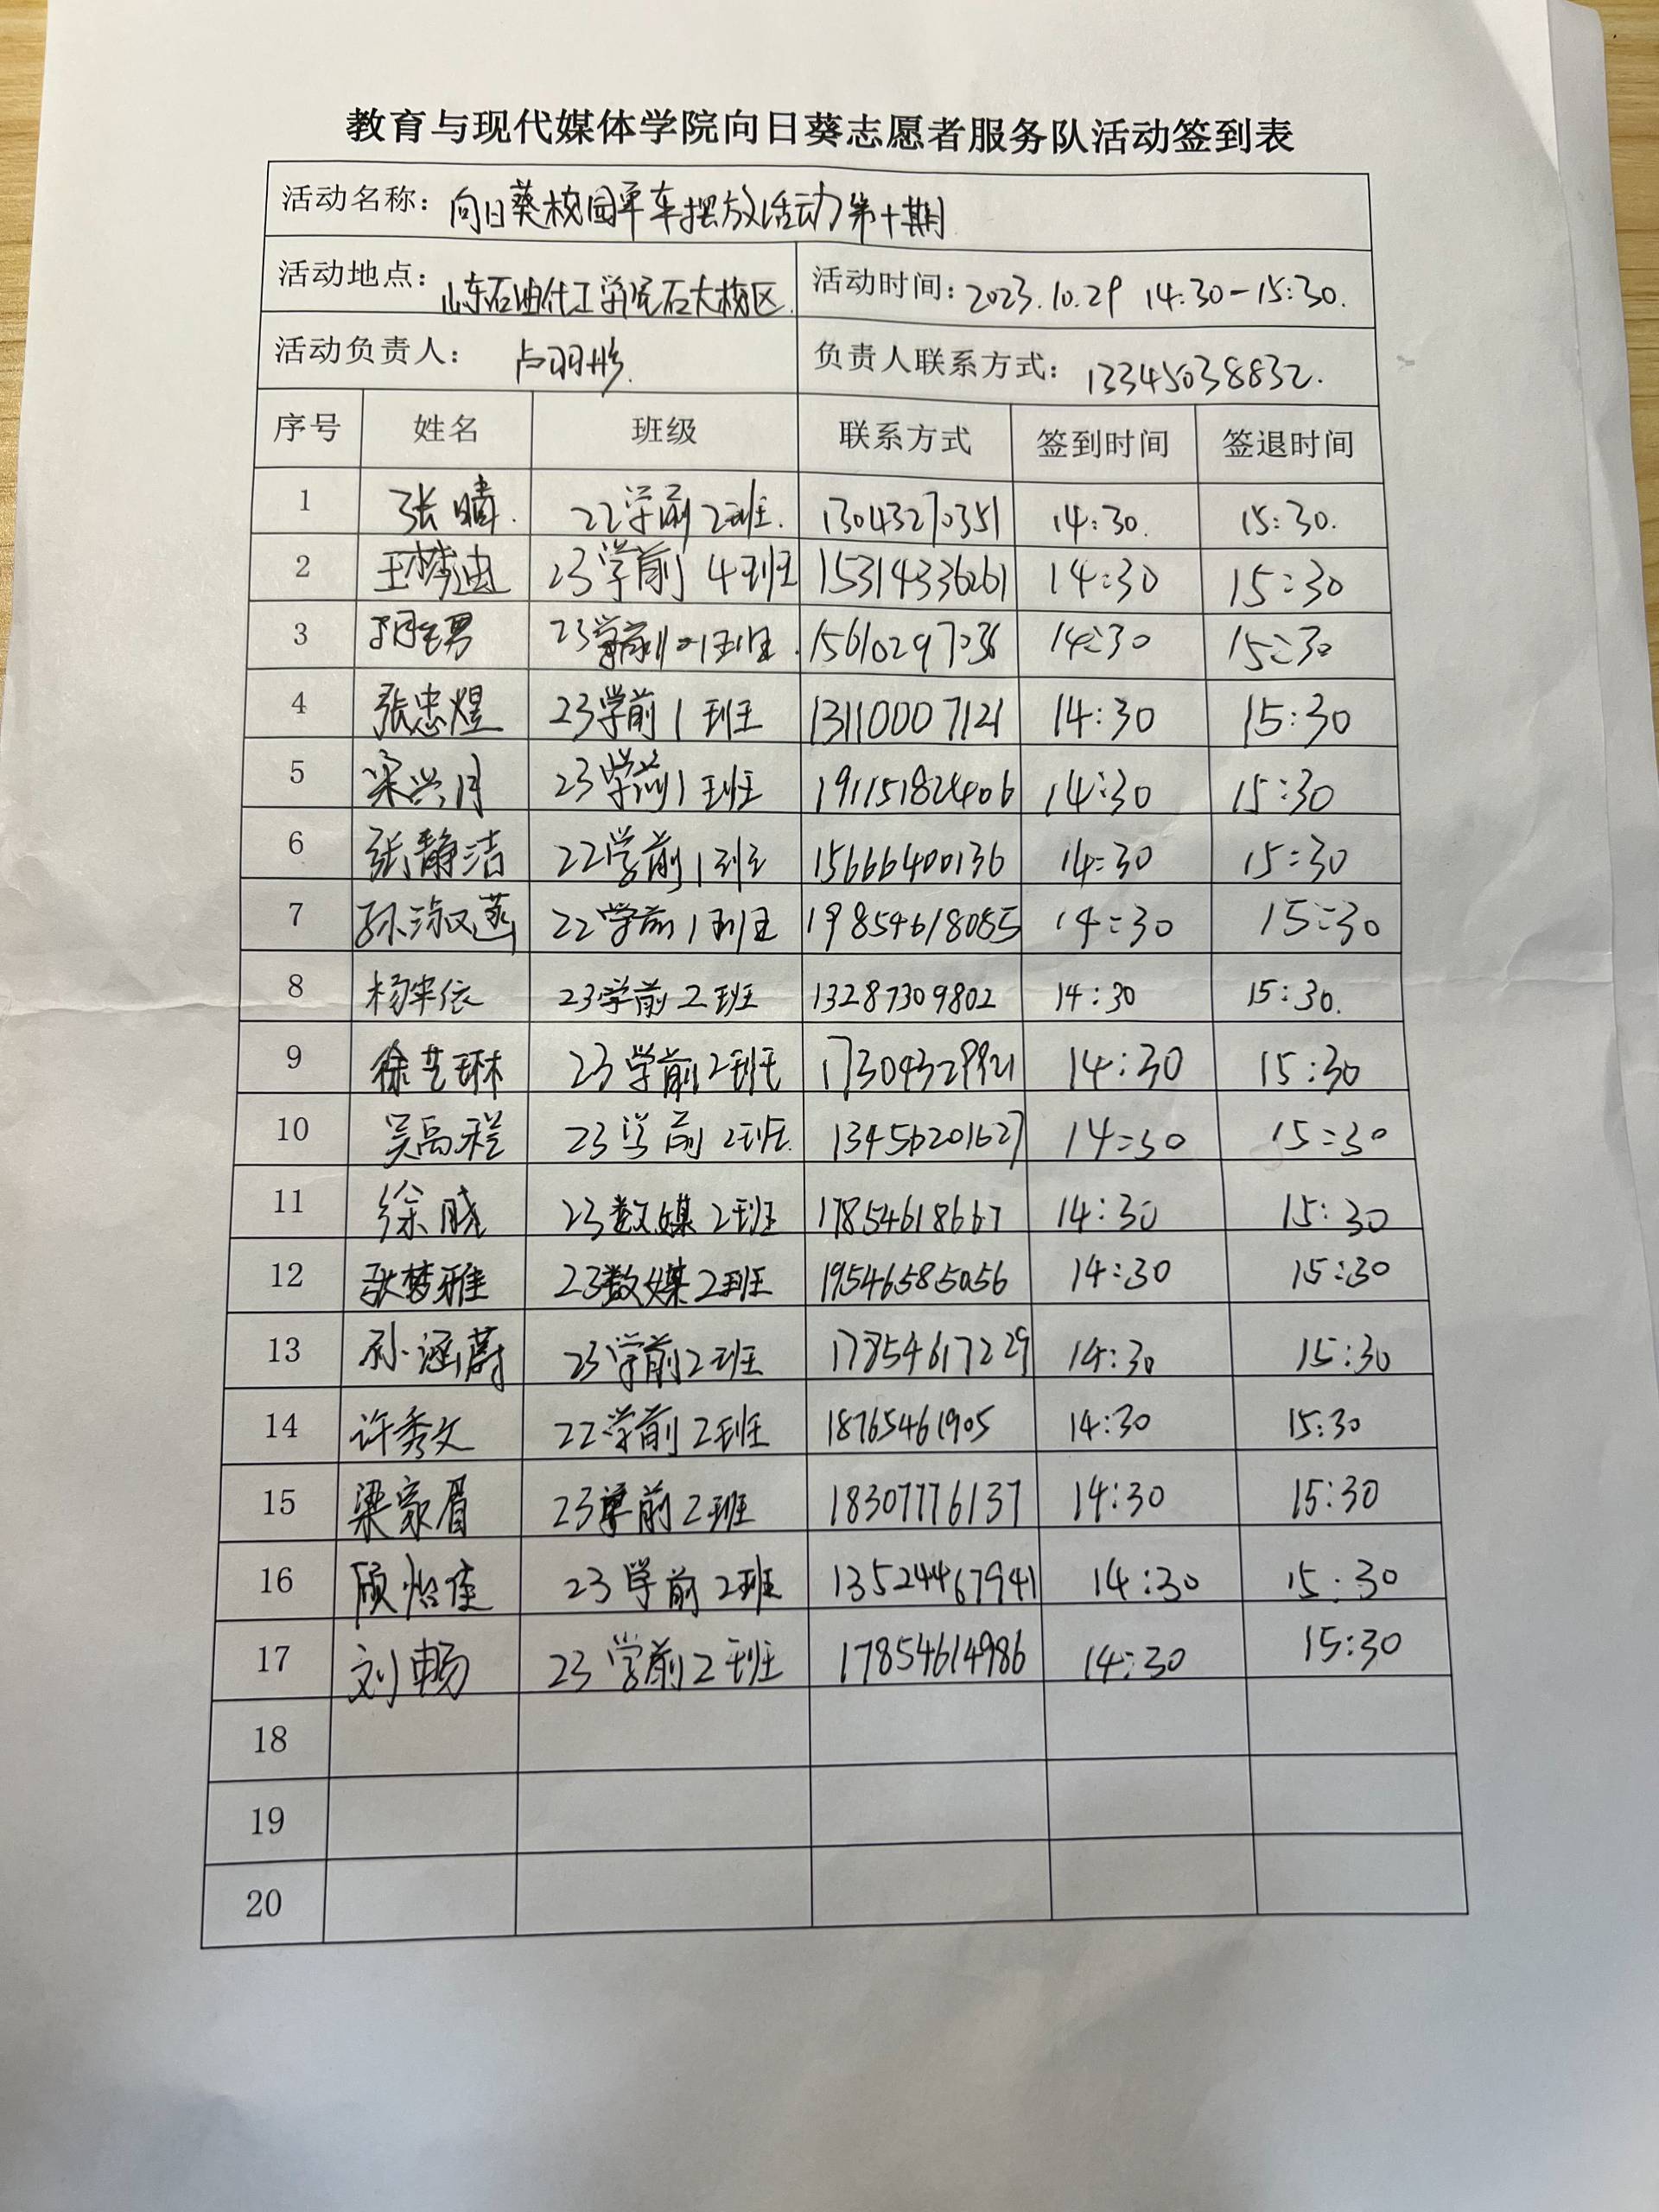 教育与现代媒体学院向日葵志愿者服务队活动签到表
活动名称：向日葵校园单车摆放活动第十期
活动地点：山东石油化工学院石大校区 活动时间：2023.10.29 14:30-15:30.
活动负责人：卢羽彤. 负责人联系方式：13345038832.
序号 姓名 班级 联系方式 签到时间 签退时间
1 张晴. 22学前2班. 13043270351 14:30. 15:30.
2 王梦迪 23学前4班 15314336261 14:30 15:30
3 23学前1班 15610297036 14:30 15:30
4 张忠煜 23学前1班 13110007121 14:30 15:30
5 梁兴月 23学前1班 19115182406 14:30 15:30
6 张静洁 22学前1班 15666400136 14:30 15:30
7 孙淑菡 22学前1班 19854618085 14:30 15:30
8 杨依 23学前2班 13287309802 14:30 15:30.
9 徐艺琳 23学前2班 17304329921 14:30 15:30
10 吴高程 23学前2班. 13456201627 14:30 15:30
11 徐晓 23数媒2班 17854618667 14:30 15:30
12 张梦雅 23数媒2班 19546585056 14:30 15:30
13 孙涵蔚 23学前2班 17854617229 14:30 15:30
14 许秀文 22学前2班 18765461905 14:30 15:30
15 梁家眉 23学前2班 18307776137 14:30 15:30
16 顾怡佳 23学前2班 13524467941 14:30 15:30
17 刘畅 23学前2班 17854614986 14:30 15:30
18
19
20